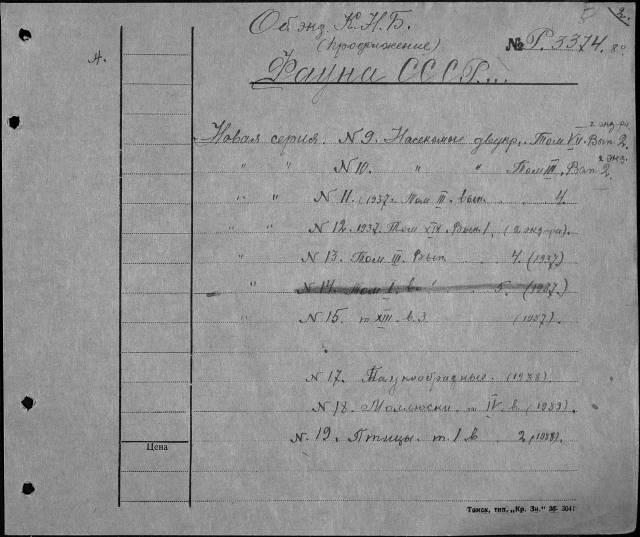 2.
Об экз. К.Н.Б.
(Продолжение)
№ Р. 3374. 8°
Фауна СССР...
А.
2 экз-ра
Новая серия. N 9. Насекомые двукр. Том VII. Вып 2.
2 экз.
" " N 10. " " Том III. Вып 2.
" " N 11. (1937. Том III. вып. 4.
" " N 12. 1937. Том XIX. Вып. 1. (2 экз-ра).
" " N 13. Том III. Вып. 4. (1937)
" N 14. Том I. в. 5. (1937.)
" N 15. т XIII. в. 3. (1937).
N 17. (1938).
N 18. Моллюски. т IV. в. (1939).
N. 19. Птицы. т. I в 2 (1938).
Цена
Томск, тип. „Кр. Зн." 3041